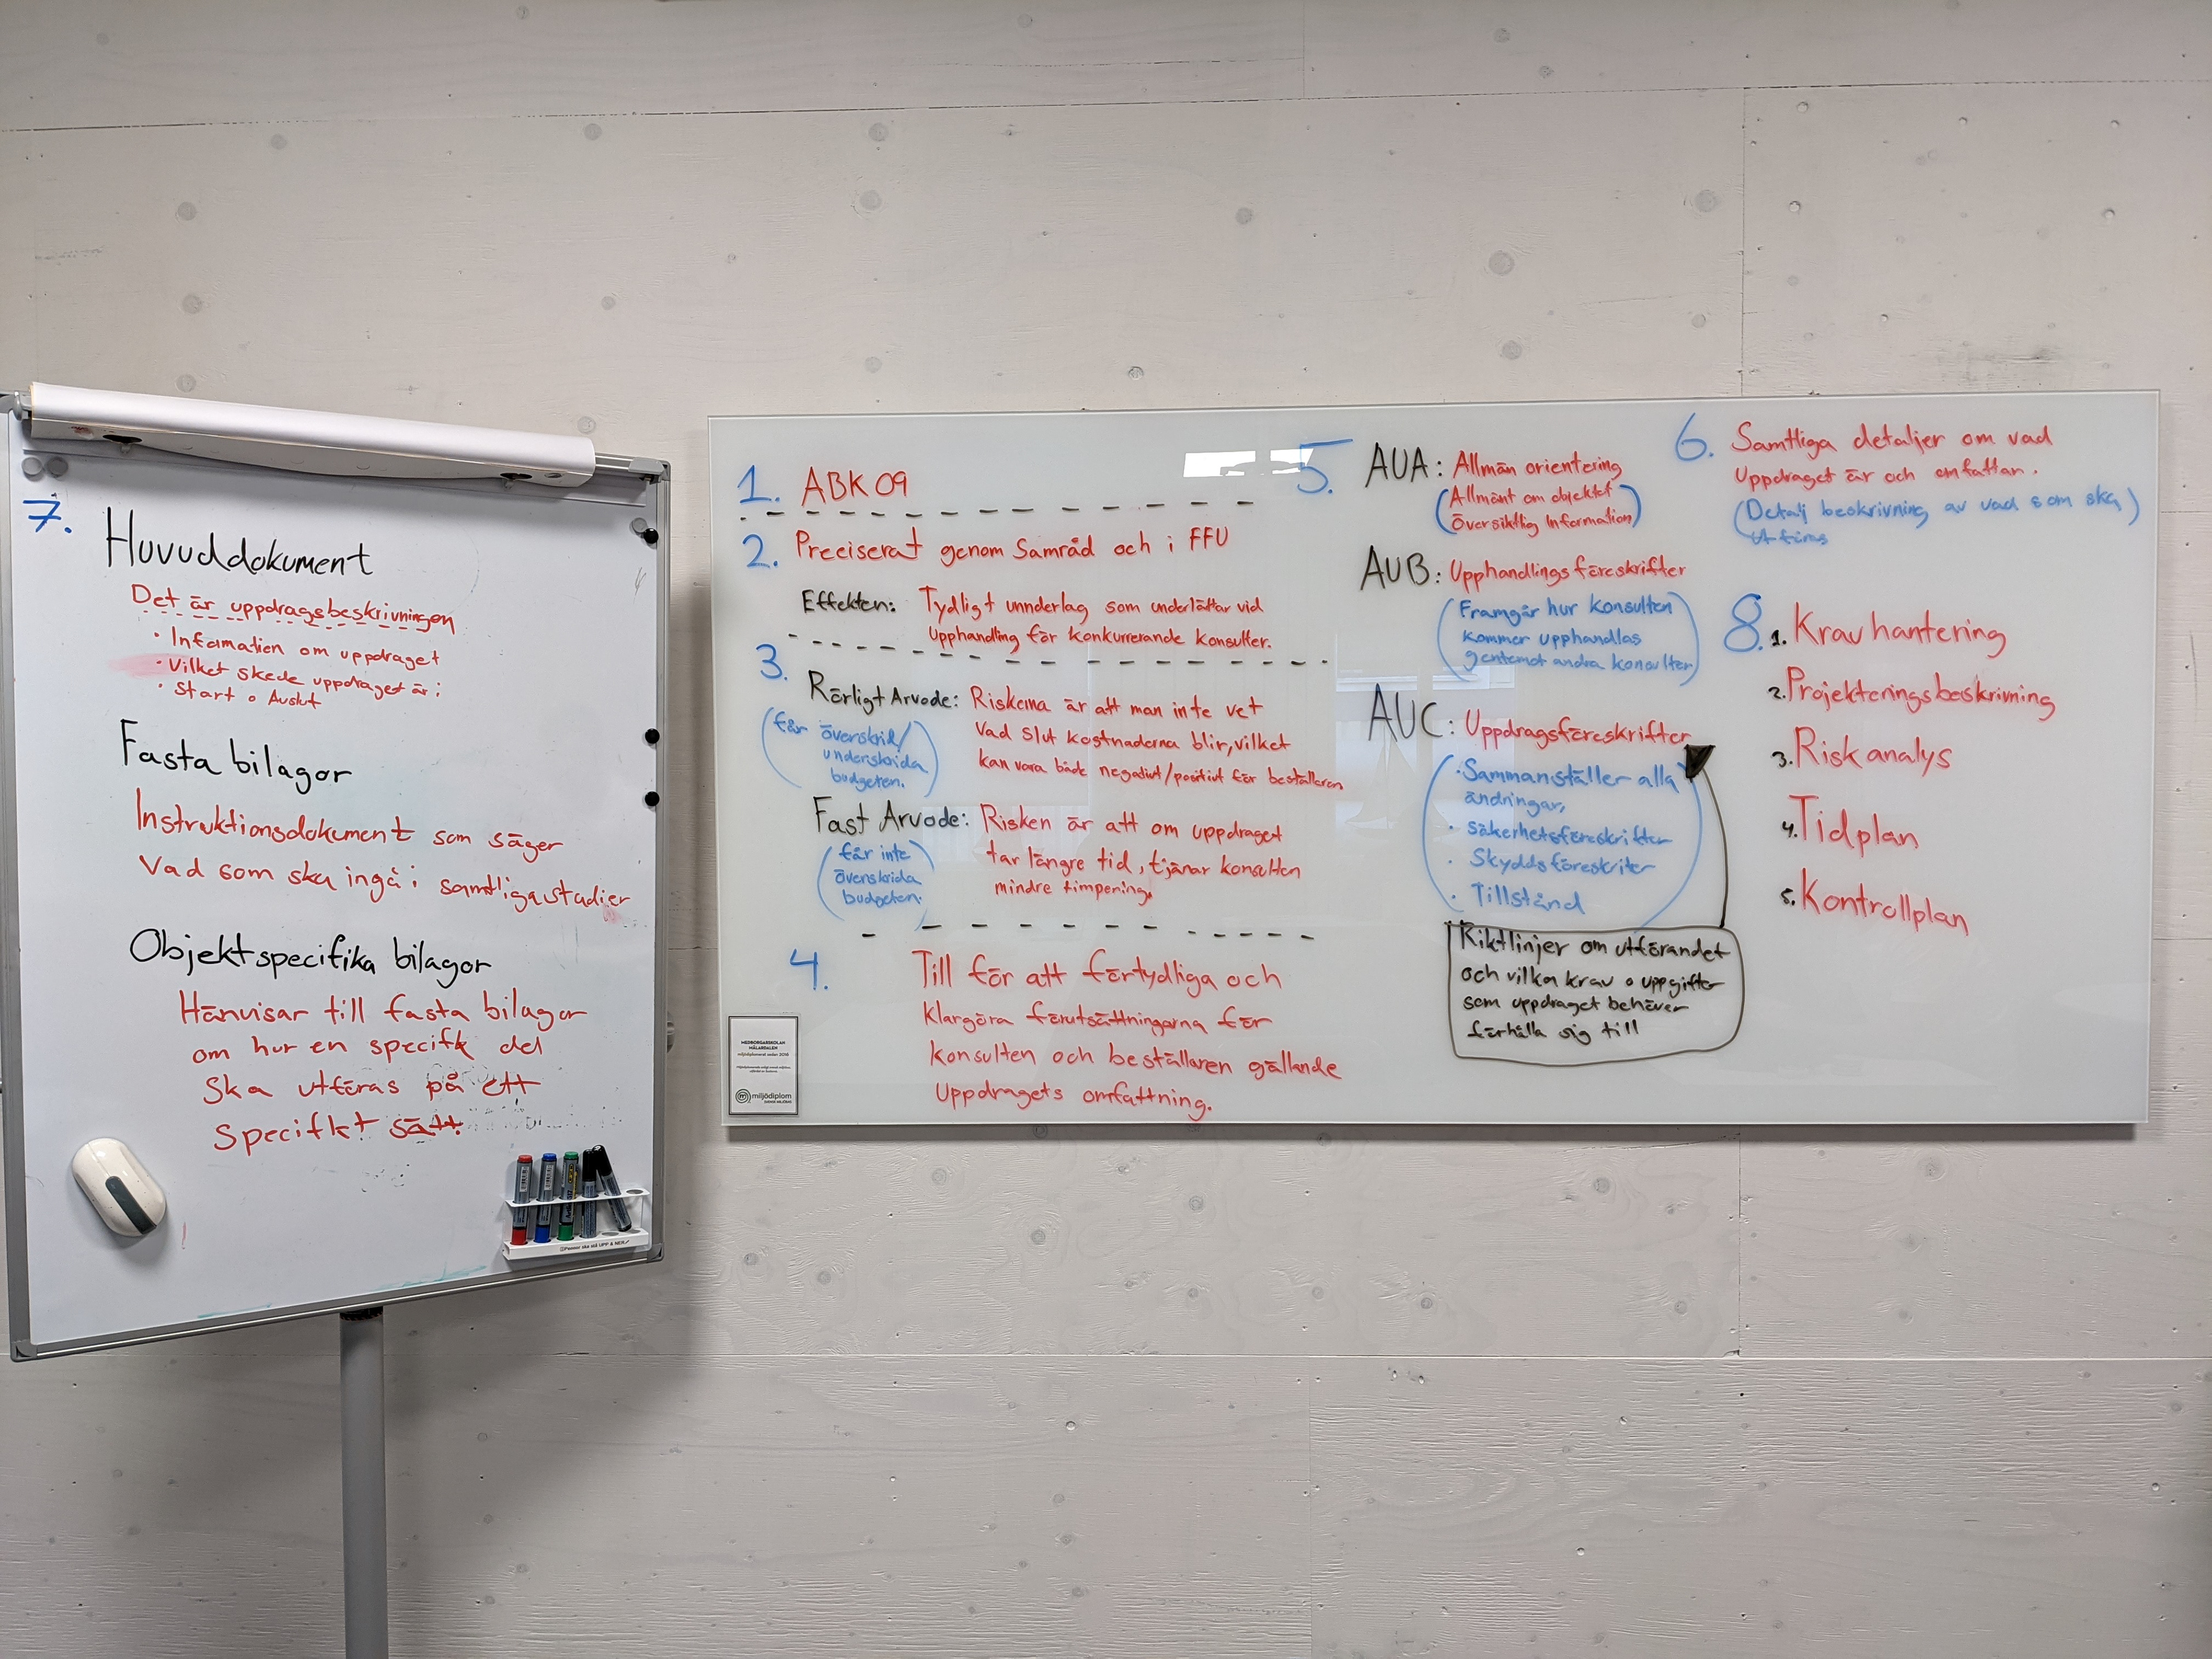 7.
Huvuddokument
Det är uppdragsbeskrivningen
• Information om uppdraget
• Vilket skede uppdraget är i
• Start o Avslut
Fasta bilagor
Instruktionsdokument som säger
Vad som ska ingå i samtliga studier
Objektspecifika bilagor
Hänvisar till fasta bilagor
om hur en specifk del
Ska utföras på ett
specifkt sätt
Pennor ska stå UPP & NER
1. ABK 09
2. Preciserat genom Samråd och i FFU
Effekten: Tydligt unnderlag som underlättar vid
Upphandling för konkurrerande konsulter.
3.
Rörligt Arvode: Riskerna är att man inte vet
Vad slut kostnaderna blir, vilket
kan vara både negativt/positivt för beställaren
(får överskrid/
underskrida
budgeten.)
Fast Arvode: Risken är att om uppdraget
tar längre tid, tjänar konsulten
mindre timpening.
(får inte
överskrida
budgeten.)
4. Till för att förtydliga och
klargöra förutsättningarna för
konsulten och beställaren gällande
Uppdragets omfattning.
MEDBORGARSKOLAN
MÄLARDALEN
miljödiplomerat sedan 2018
miljödiplom
SVENSK MILJÖBAS
5. AUA: Allmän orientering
(Allmänt om objektet
översiktlig information)
AUB: Upphandlings föreskrifter
(Framgår hur konsulten
kommer upphandlas
gentemot andra konsulter)
AUC: Uppdragsföreskrifter
• Sammanställer alla
ändringar,
• säkerhetsföreskrifter
• Skyddsföreskriter
• Tillstånd
Riktlinjer om utförandet
och vilka krav o uppgifter
som uppdraget behöver
förhålla sig till
6. Samtliga detaljer om vad
Uppdraget är och omfattar.
(Detalj beskrivning av vad som ska
utföras)
8.
1. Kravhantering
2. Projekteringsbeskrivning
3. Riskanalys
4. Tidplan
5. Kontrollplan